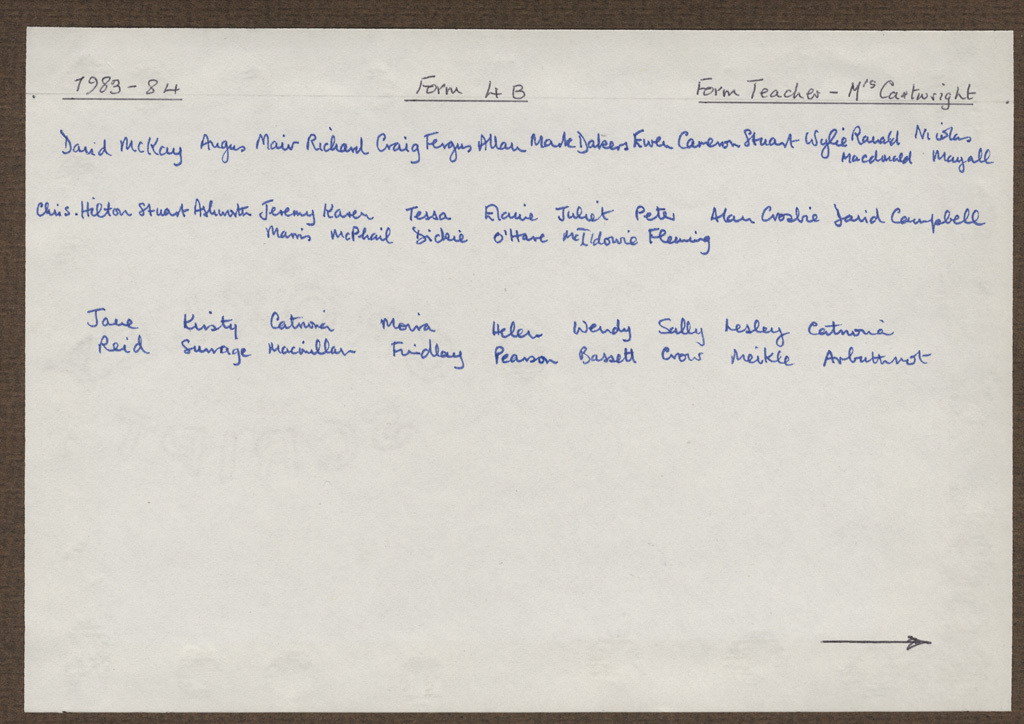 1983-84 Form 4B Form Teacher - Mrs Cartwright
David McKay Angus Mair Richard Craig Fergus Allan Mark Dakers Ewen Cameron Stuart Wylie Ranald Nicolas
Macdonald Mayall
Chris. Hilton Stuart Ashworth Jeremy Karen Tessa Elaine Juliet Peter Alan Crosbie David Campbell
Marris McPhail Dickie O'Hare McIldowie Fleming
Jane Kirsty Catriona Moira Helen Wendy Sally Lesley Catriona
Reid Surrage Macmillan Findlay Pearson Bassett Crow Meikle Arbuthnot